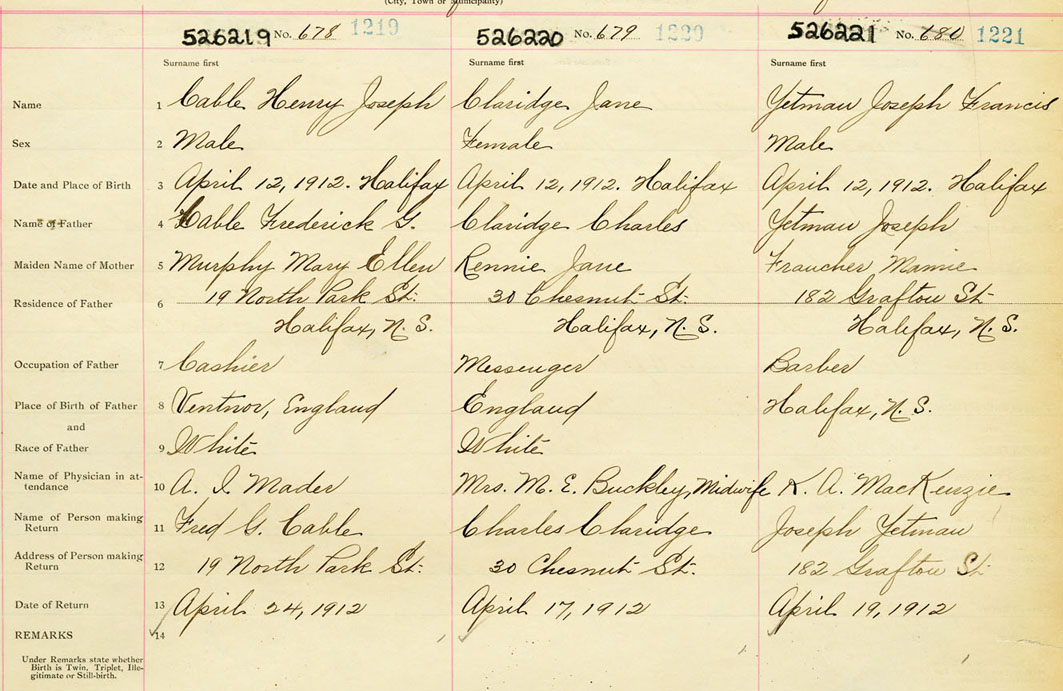 (City, Town or Municipality)
526219 No. 678 1219 526220 No. 679 1220 526221 No. 680 1221
Surname first Surname first Surname first
Name 1 Cable Henry Joseph Claridge Jane Yetman Joseph Francis
Sex 2 Male Female Male
Date and Place of Birth 3 April 12, 1912. Halifax April 12, 1912. Halifax April 12, 1912. Halifax
Name of Father 4 Cable Frederick G. Claridge Charles Yetman Joseph
Maiden Name of Mother 5 Murphy Mary Ellen Rennie Jane Fraucher Mamie
Residence of Father 6 19 North Park St. 30 Chesnut St. 182 Grafton St
Halifax, N. S. Halifax, N. S. Halifax, N. S.
Occupation of Father 7 Cashier Messenger Barber
Place of Birth of Father 8 Ventnor, England England Halifax, N. S.
and
Race of Father 9 White White
Name of Physician in at-
tendance 10 A. I. Mader Mrs. M. E. Buckley, Midwife K. A. MacKenzie
Name of Person making
Return 11 Fred G. Cable Charles Claridge Joseph Yetman
Address of Person making
Return 12 19 North Park St. 30 Chesnut St. 182 Grafton St
Date of Return 13 April 24, 1912 April 17, 1912 April 19, 1912
REMARKS 14
Under Remarks state whether
Birth is Twin, Triplet, Ille-
gitimate or Still-birth.